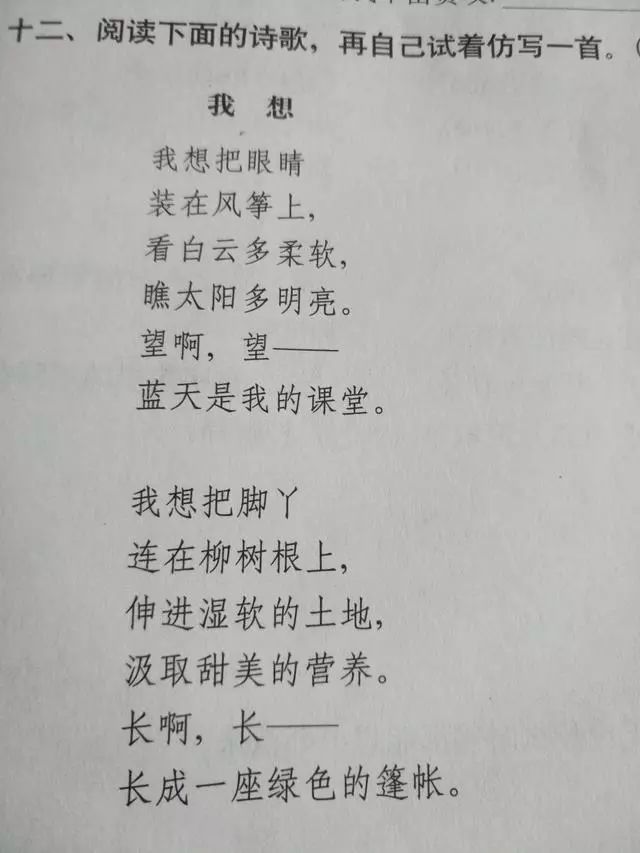 十二、阅读下面的诗歌，再自己试着仿写一首。（
我 想
我想把眼睛
装在风筝上，
看白云多柔软，
瞧太阳多明亮。
望啊，望——
蓝天是我的课堂。
我想把脚丫
连在柳树根上，
伸进湿软的土地，
汲取甜美的营养。
长啊，长——
长成一座绿色的篷帐。